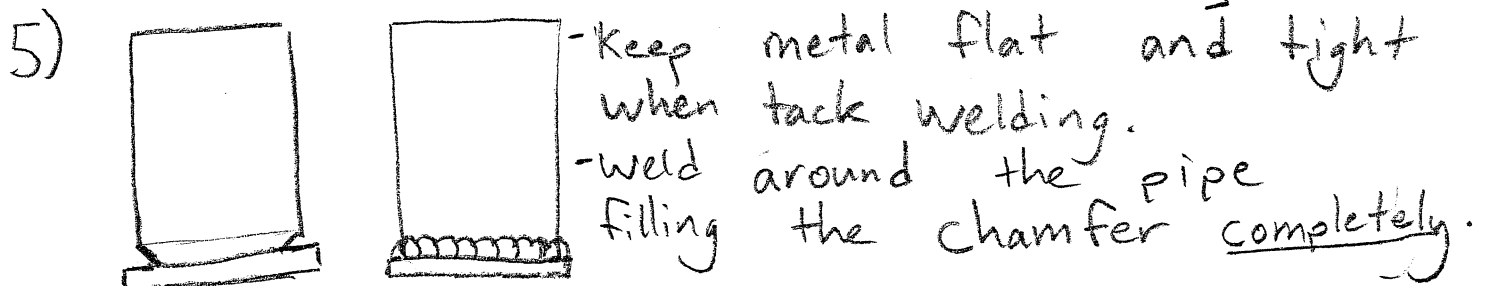 5)
-Keep metal flat and tight
when tack welding.
-Weld around the pipe
filling the chamfer completely.